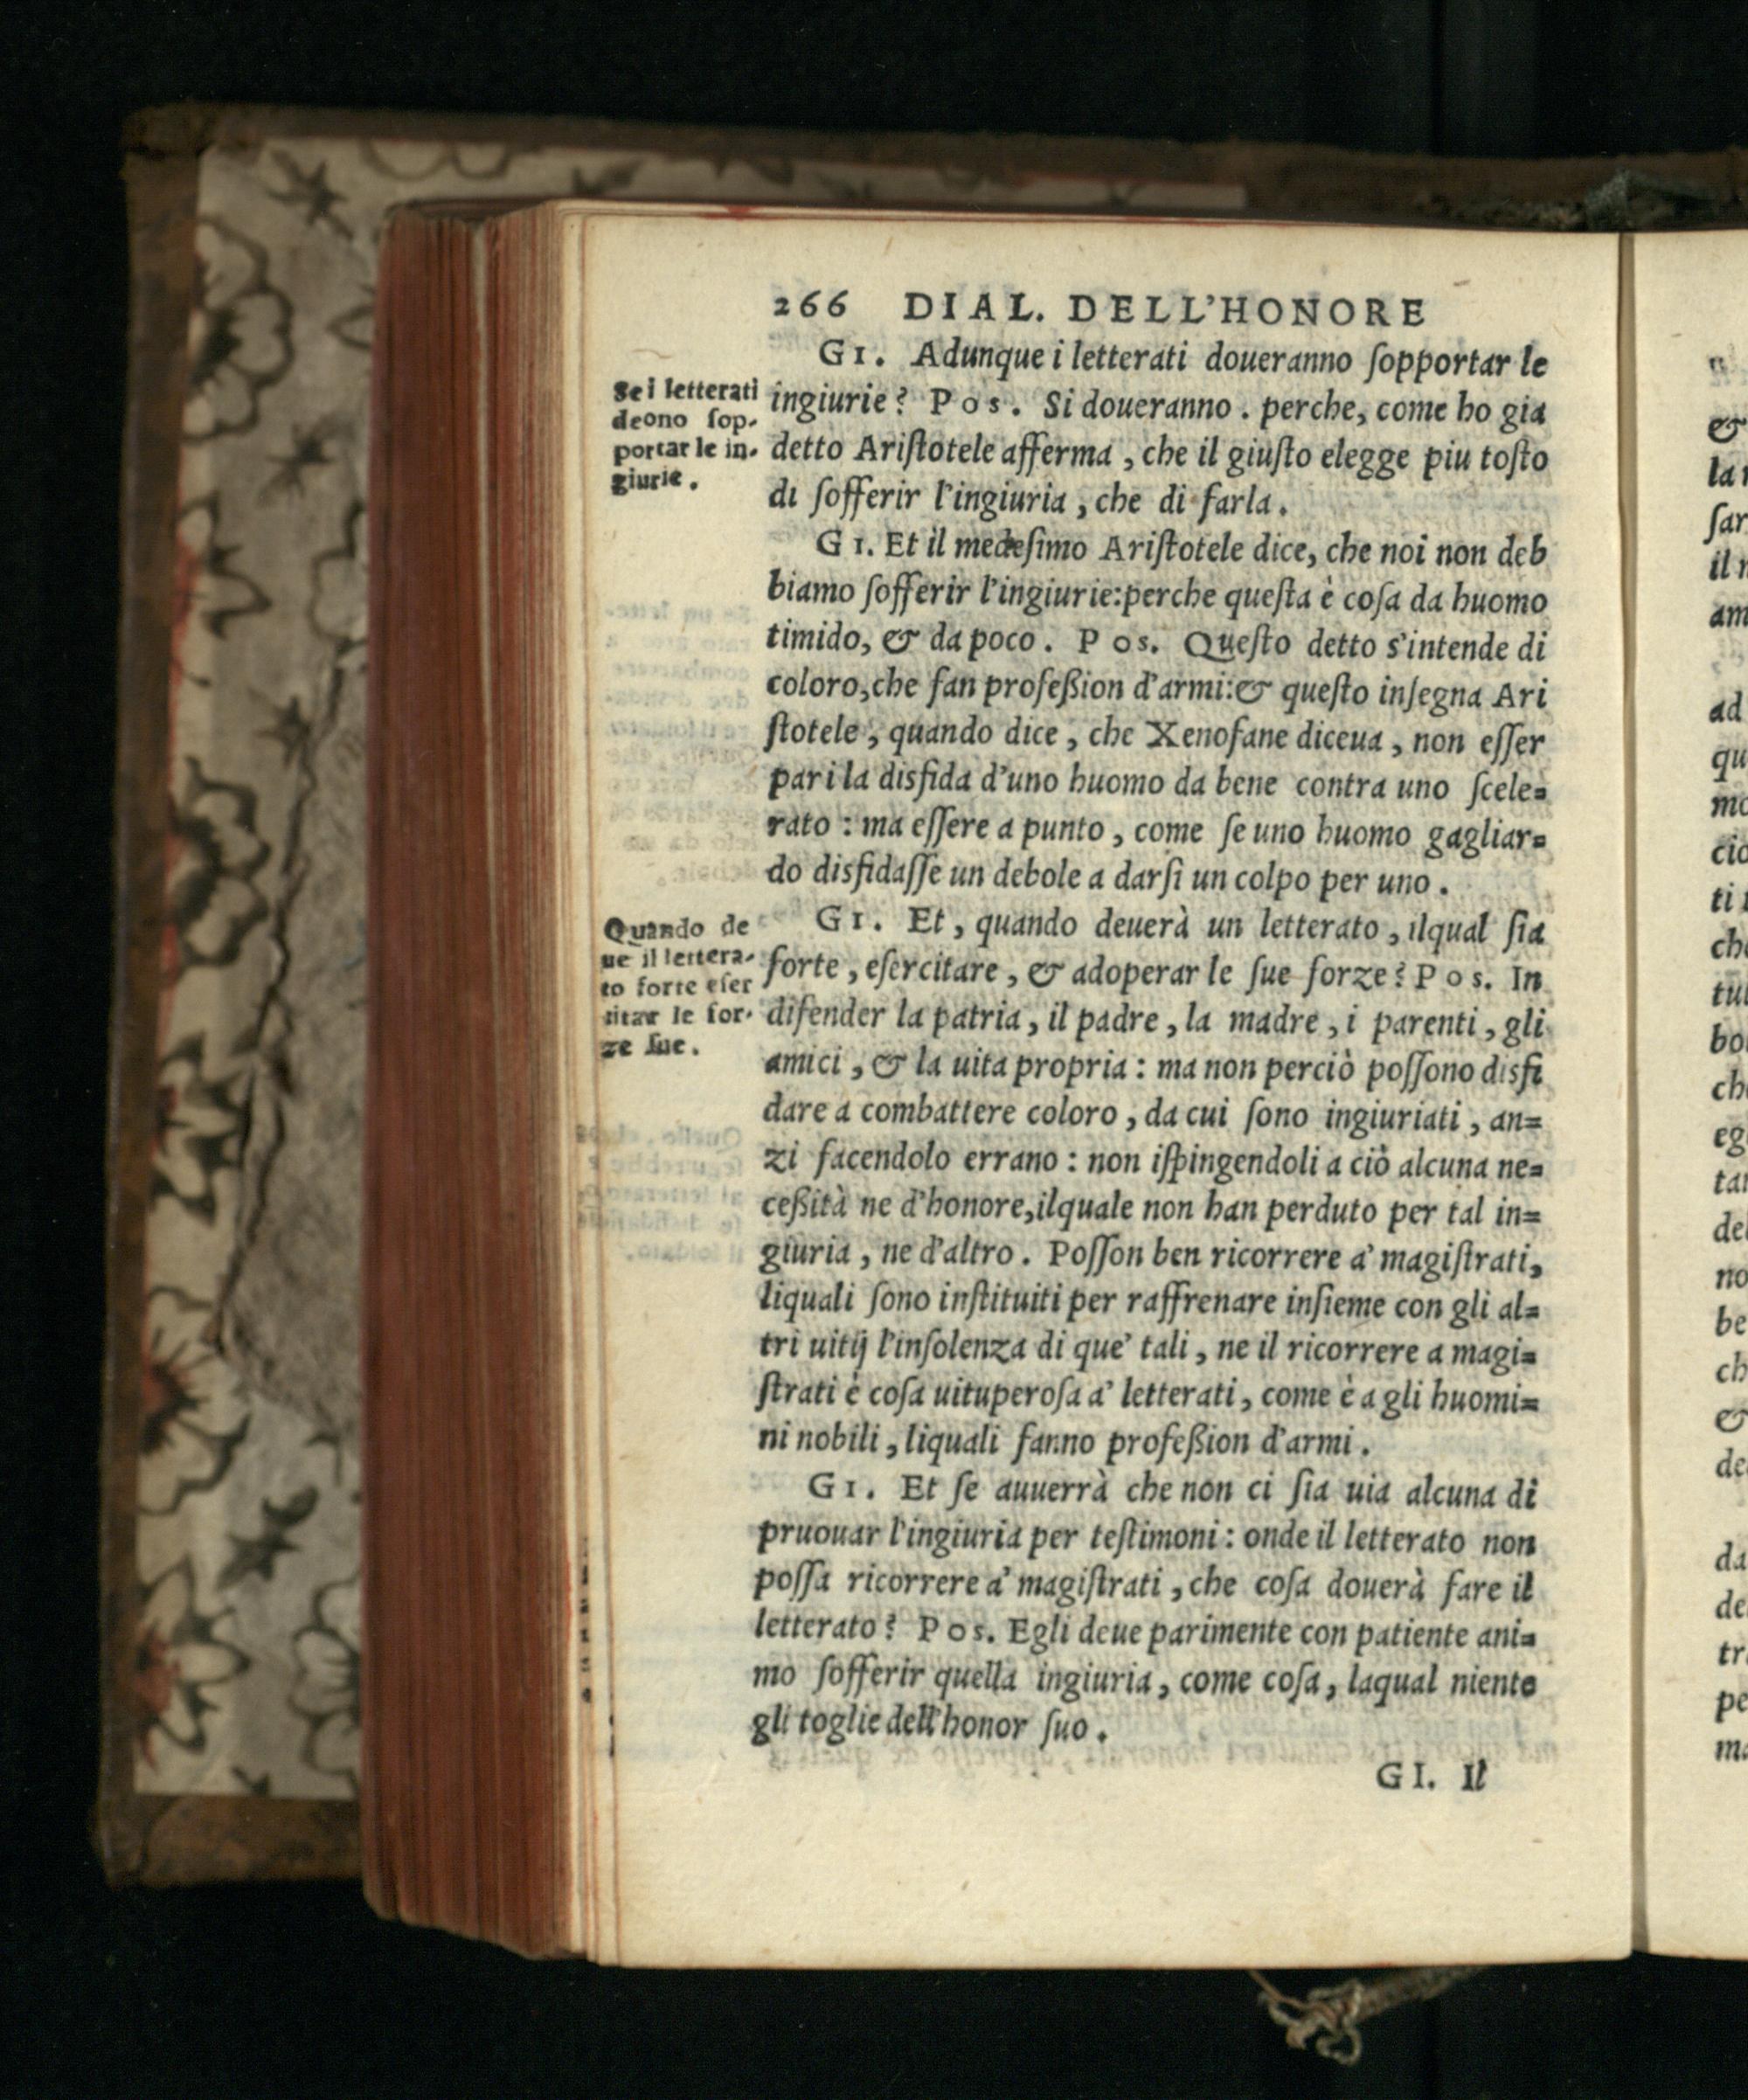 266 DIAL. DELL'HONORE
GI. Adunque i letterati doueranno ſopportar le
ingiurie? Pos. Si doueranno. perche, come ho gia
detto Ariſtotele afferma, che il giuſto elegge piu toſto
di ſofferir l'ingiuria, che di farla.
GI. Et il medeſimo Ariſtotele dice, che noi non deb
biamo ſofferir l'ingiurie: perche queſta è coſa da huomo
timido, & da poco. Pos. Queſto detto s'intende di
coloro, che fan profeßion d'armi: & queſto inſegna Ari
ſtotele, quando dice, che Xenofane diceua, non eſſer
pari la disfida d'uno huomo da bene contra uno ſcele=
rato: ma eſſere a punto, come ſe uno huomo gagliar=
do disfidaſſe un debole a darſi un colpo per uno.
GI. Et, quando deuerà un letterato, ilqual ſia
forte, eſercitare, & adoperar le ſue forze? Pos. In
difender la patria, il padre, la madre, i parenti, gli
amici, & la uita propria: ma non perciò poſſono disfi
dare a combattere coloro, da cui ſono ingiuriati, an=
zi facendolo errano: non iſpingendoli a ciò alcuna ne=
ceßità ne d'honore, ilquale non han perduto per tal in=
giuria, ne d'altro. Poſſon ben ricorrere a' magiſtrati,
liquali ſono inſtituiti per raffrenare inſieme con gli al=
tri uitij l'inſolenza di que' tali, ne il ricorrere a magi=
ſtrati è coſa uituperoſa a' letterati, come è a gli huomi=
ni nobili, liquali fanno profeßion d'armi.
GI. Et ſe auuerrà che non ci ſia uia alcuna di
pruouar l'ingiuria per teſtimoni: onde il letterato non
poſſa ricorrere a' magiſtrati, che coſa douerà fare il
letterato? Pos. Egli deue parimente con patiente ani=
mo ſofferir quella ingiuria, come coſa, laqual niente
gli toglie dell'honor ſuo.
GI. Il
Se i letterati
deono ſop-
portar le in-
giurie.
Quando de
ue il lettera-
to forte eſer
citar le for-
ze ſue.
&
la
ſar
il
am
ad
qu
mo
cio
ti
che
tul
bo
ch
eg
tar
del
no
be
ch
&
de
da
de
tr
pe
ma